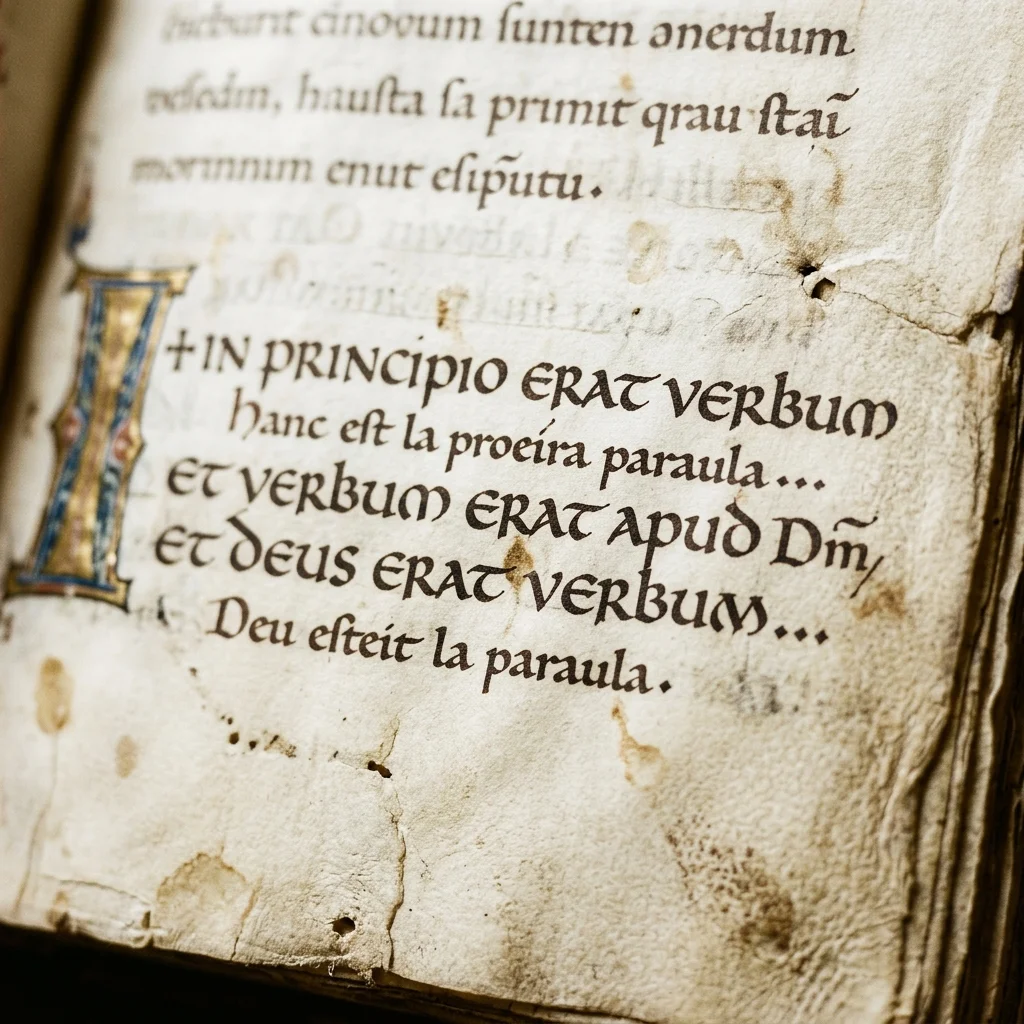 cinovum ſunten anerdum
hauſta ſa primit qrau ſtaĩ
morinnum enut eſip̃utu.
+IN PRINCIPIO ERAT VERBUM
Hanc eſt la proeíra paraula...
ET VERBUM ERAT APUD Dm̃,
ET DEUS ERAT VERBUM...
Deu eſteit la paraula.